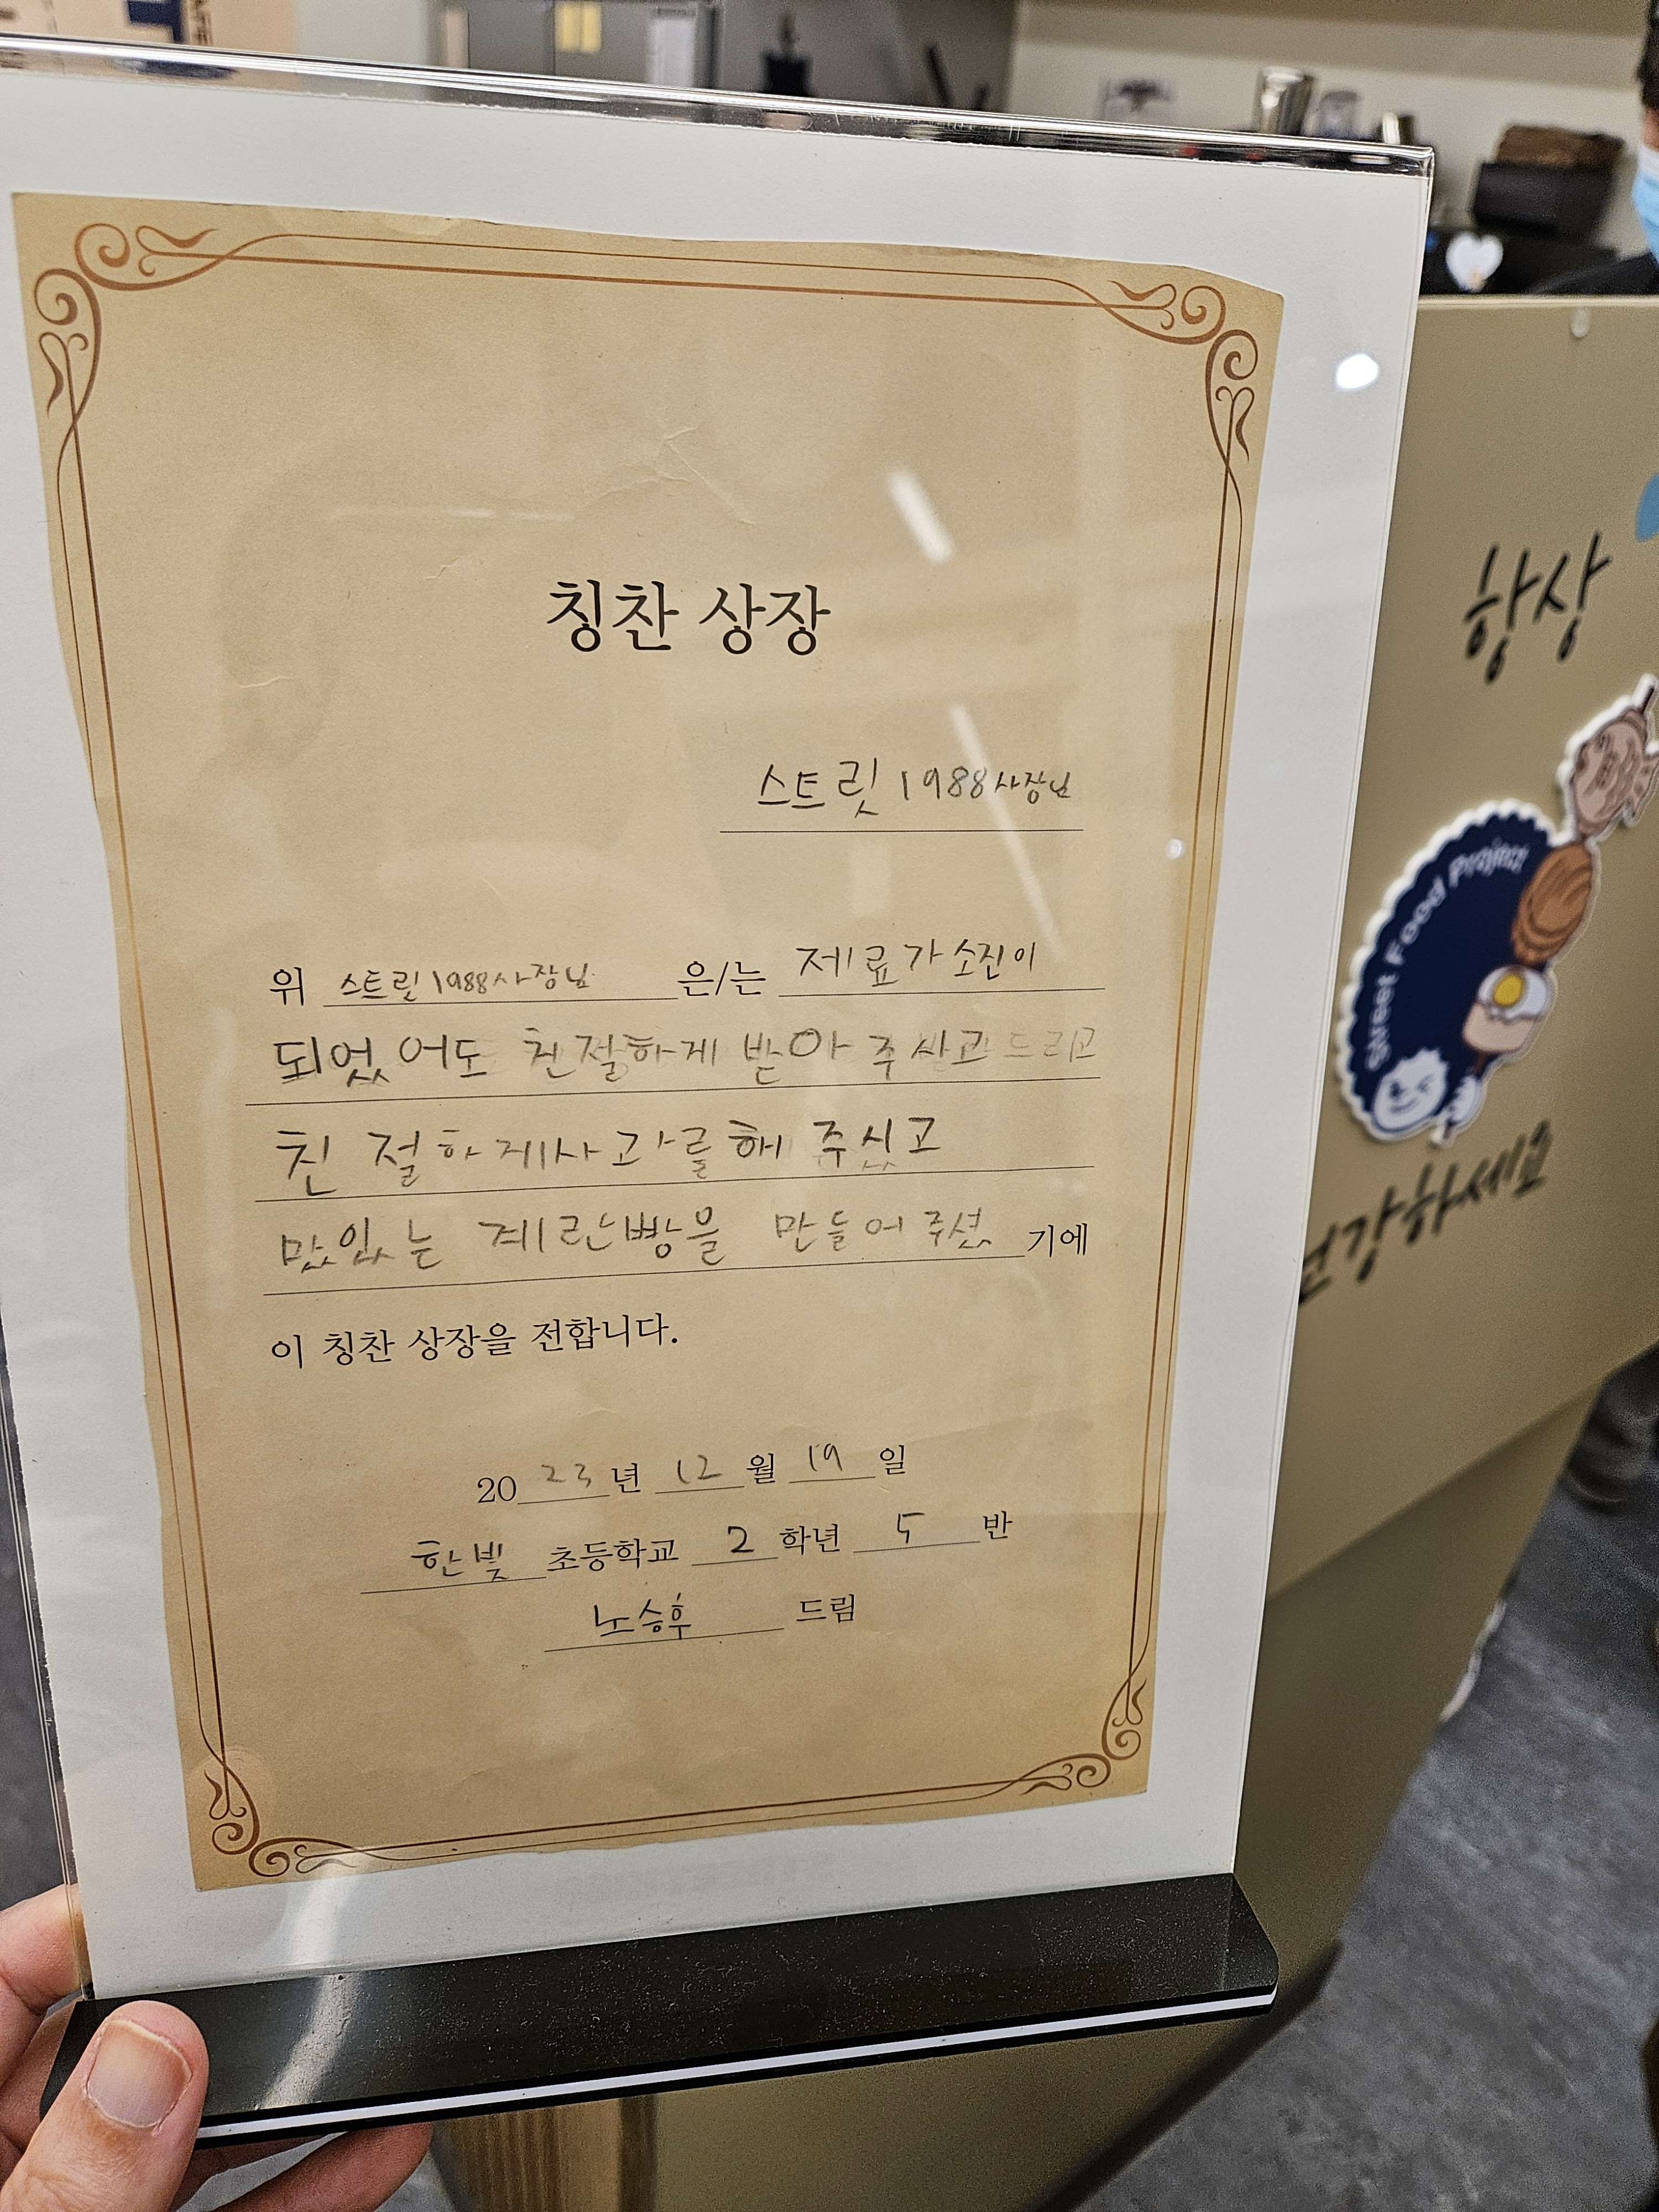 칭찬 상장
스트릿 1988 사장님
위 스트릿 1988 사장님 은/는 제료가 소진이
되었어도 친절하게 받아 주시고 드리고
친절하게 사과를 해 주싰고
맜있는 계란빵을 만들어 주셨 기에
이 칭찬 상장을 전합니다.
20 23 년 12 월 19 일
한빛 초등학교 2 학년 5 반
노승후 드림
항상
Street Food Project
건강하세요